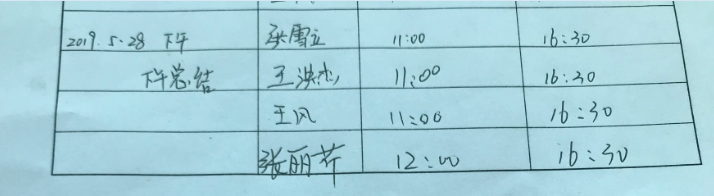 2019.5.28 下午 张雪立 11:00 16:30
下午总结 王洪杰 11:00 16:30
王风 11:00 16:30
张丽芹 12:00 16:30